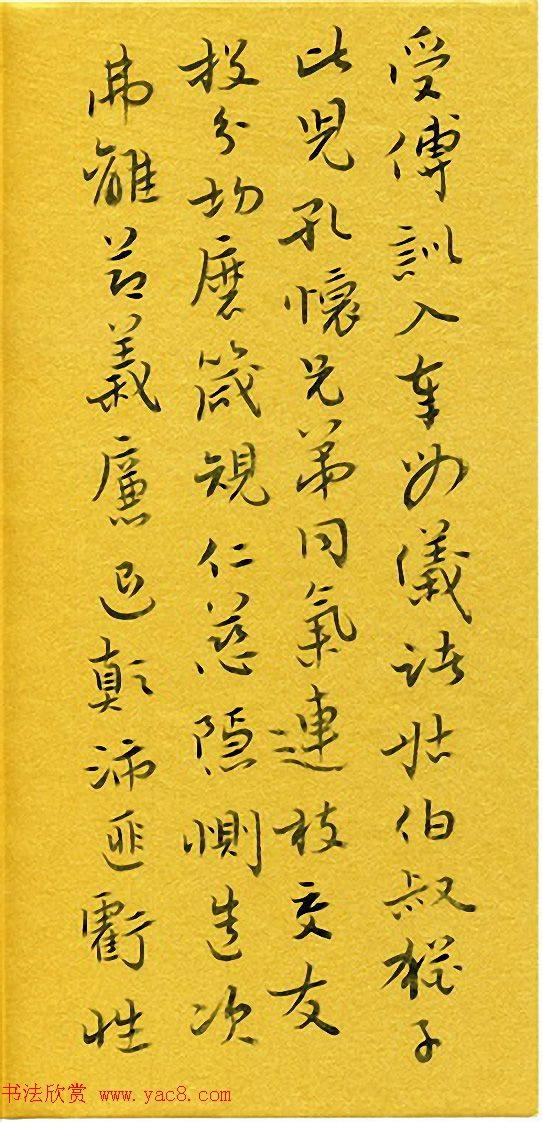 受傅訓入奉母儀諸姑伯叔猶子
比兒孔懷兄弟同氣連枝交友
投分切磨箴規仁慈隱惻造次
弗離節義廉退顛沛匪虧性
书法欣赏 www.yac8.com